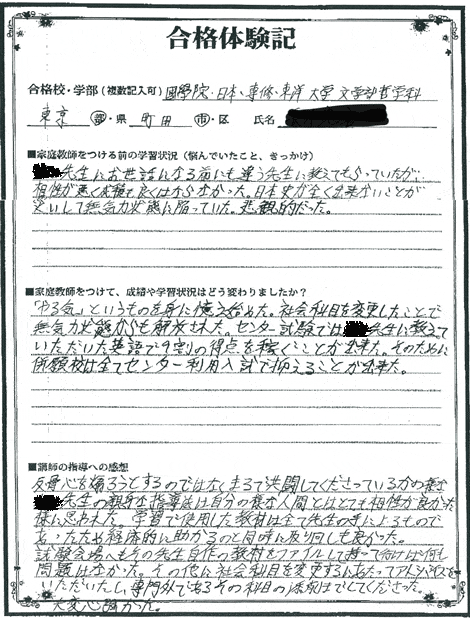 合格体験記
合格校・学部(複数記入可) 國學院・日本・専修・東洋大学 文学部哲学科
東京 都・県 町田 市・区 氏名
■家庭教師をつける前の学習状況(悩んでいたこと、きっかけ)
先生にお世話になる前にも違う先生に教えてもらっていたが
相性が悪く成績も良くはならなかった。日本史が全く出来ないことが
災いして無気力状態に陥っていた。悲観的だった。
■家庭教師をつけて、成績や学習状況はどう変わりましたか?
「やる気」というものを身に憶え始めた。社会科目を変更したことで
無気力状態からも解放された。センター試験では 先生に教えて
いただいた英語で9割の得点を稼ぐことが出来た。そのために
併願校は全てセンター利用入試で抑えることが出来た。
■講師の指導への感想
反骨心を煽ろうとするのではなくまるで共闘してくださっているかの様な
先生の親身な指導法は自分の様な人間とはとても相性が良かった
様に思われた。学習で使用した教材は全て先生の手によるもので
あったため経済的に助かるのと同時に取り回しも良かった。
試験会場へもその先生自作の教材をファイルして持って行けば何も
問題はなかった。その他に社会科目を変更するにあたってアドバイスを
いただいたり、専門外であるその科目の添削までしてくださった。
大変心強かった。